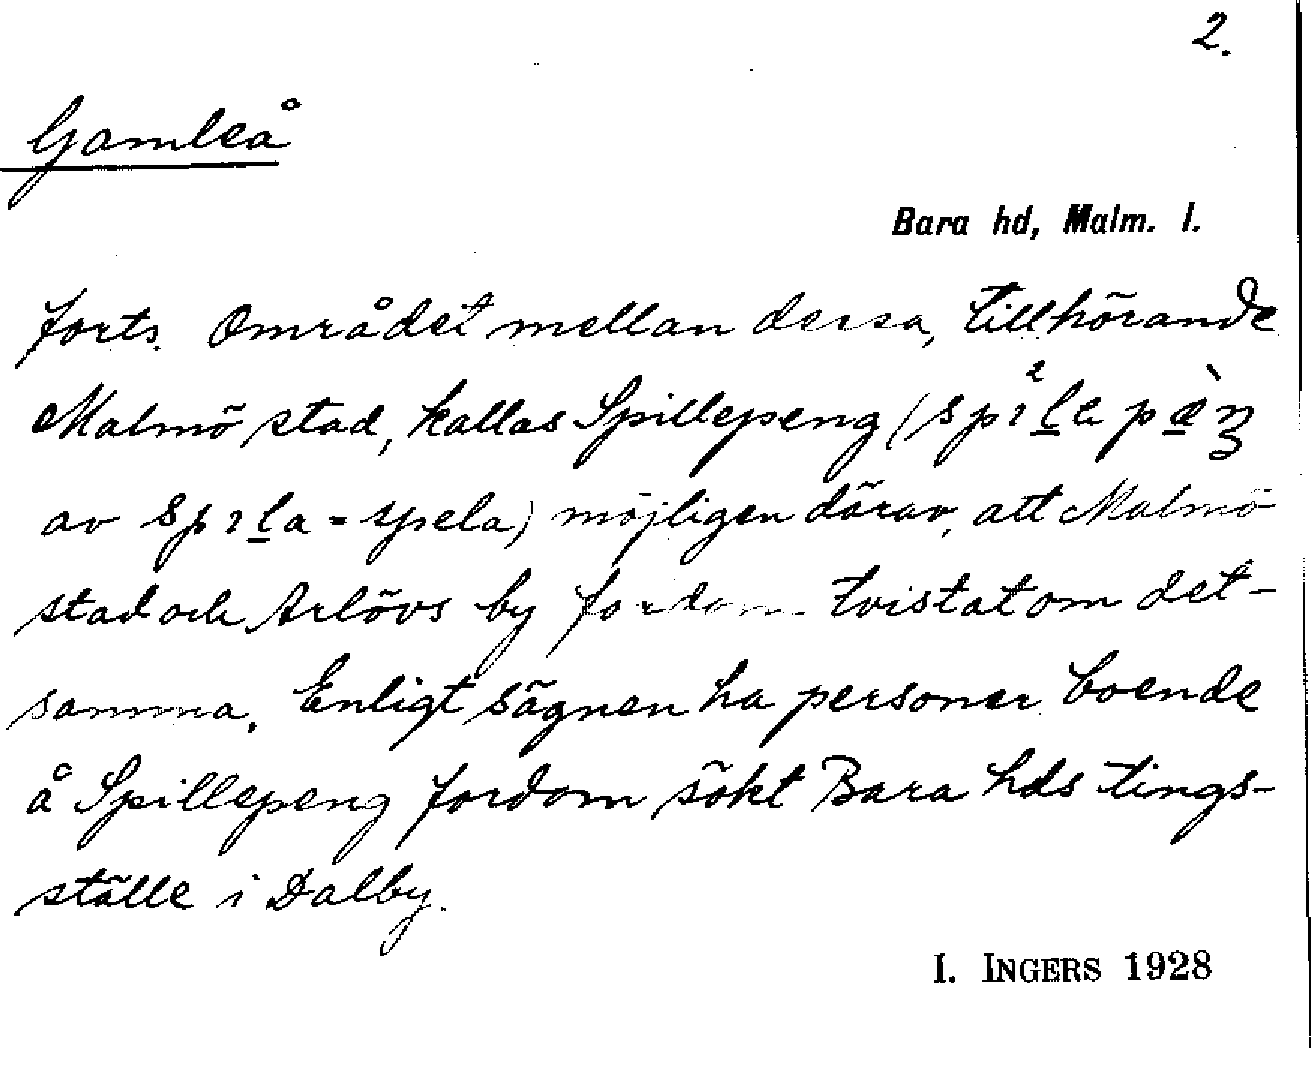 2.
Gamleå
Bara hd, Malm. l.
forts. Området mellan dessa, tillhörande
Malmö stad, kallas Spillepeng (
av = spela) möjligen därav, att Malmö
stad och Arlövs by fordom tvistat om det-
samma. Enligt sägnen ha personer boende
å Spillepeng fordom sökt Bara hds tings-
ställe i Dalby.
I. INGERS 1928